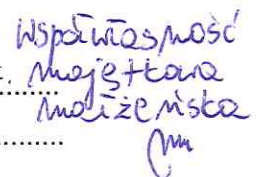 Współwłasność
majątkowa
małżeńska